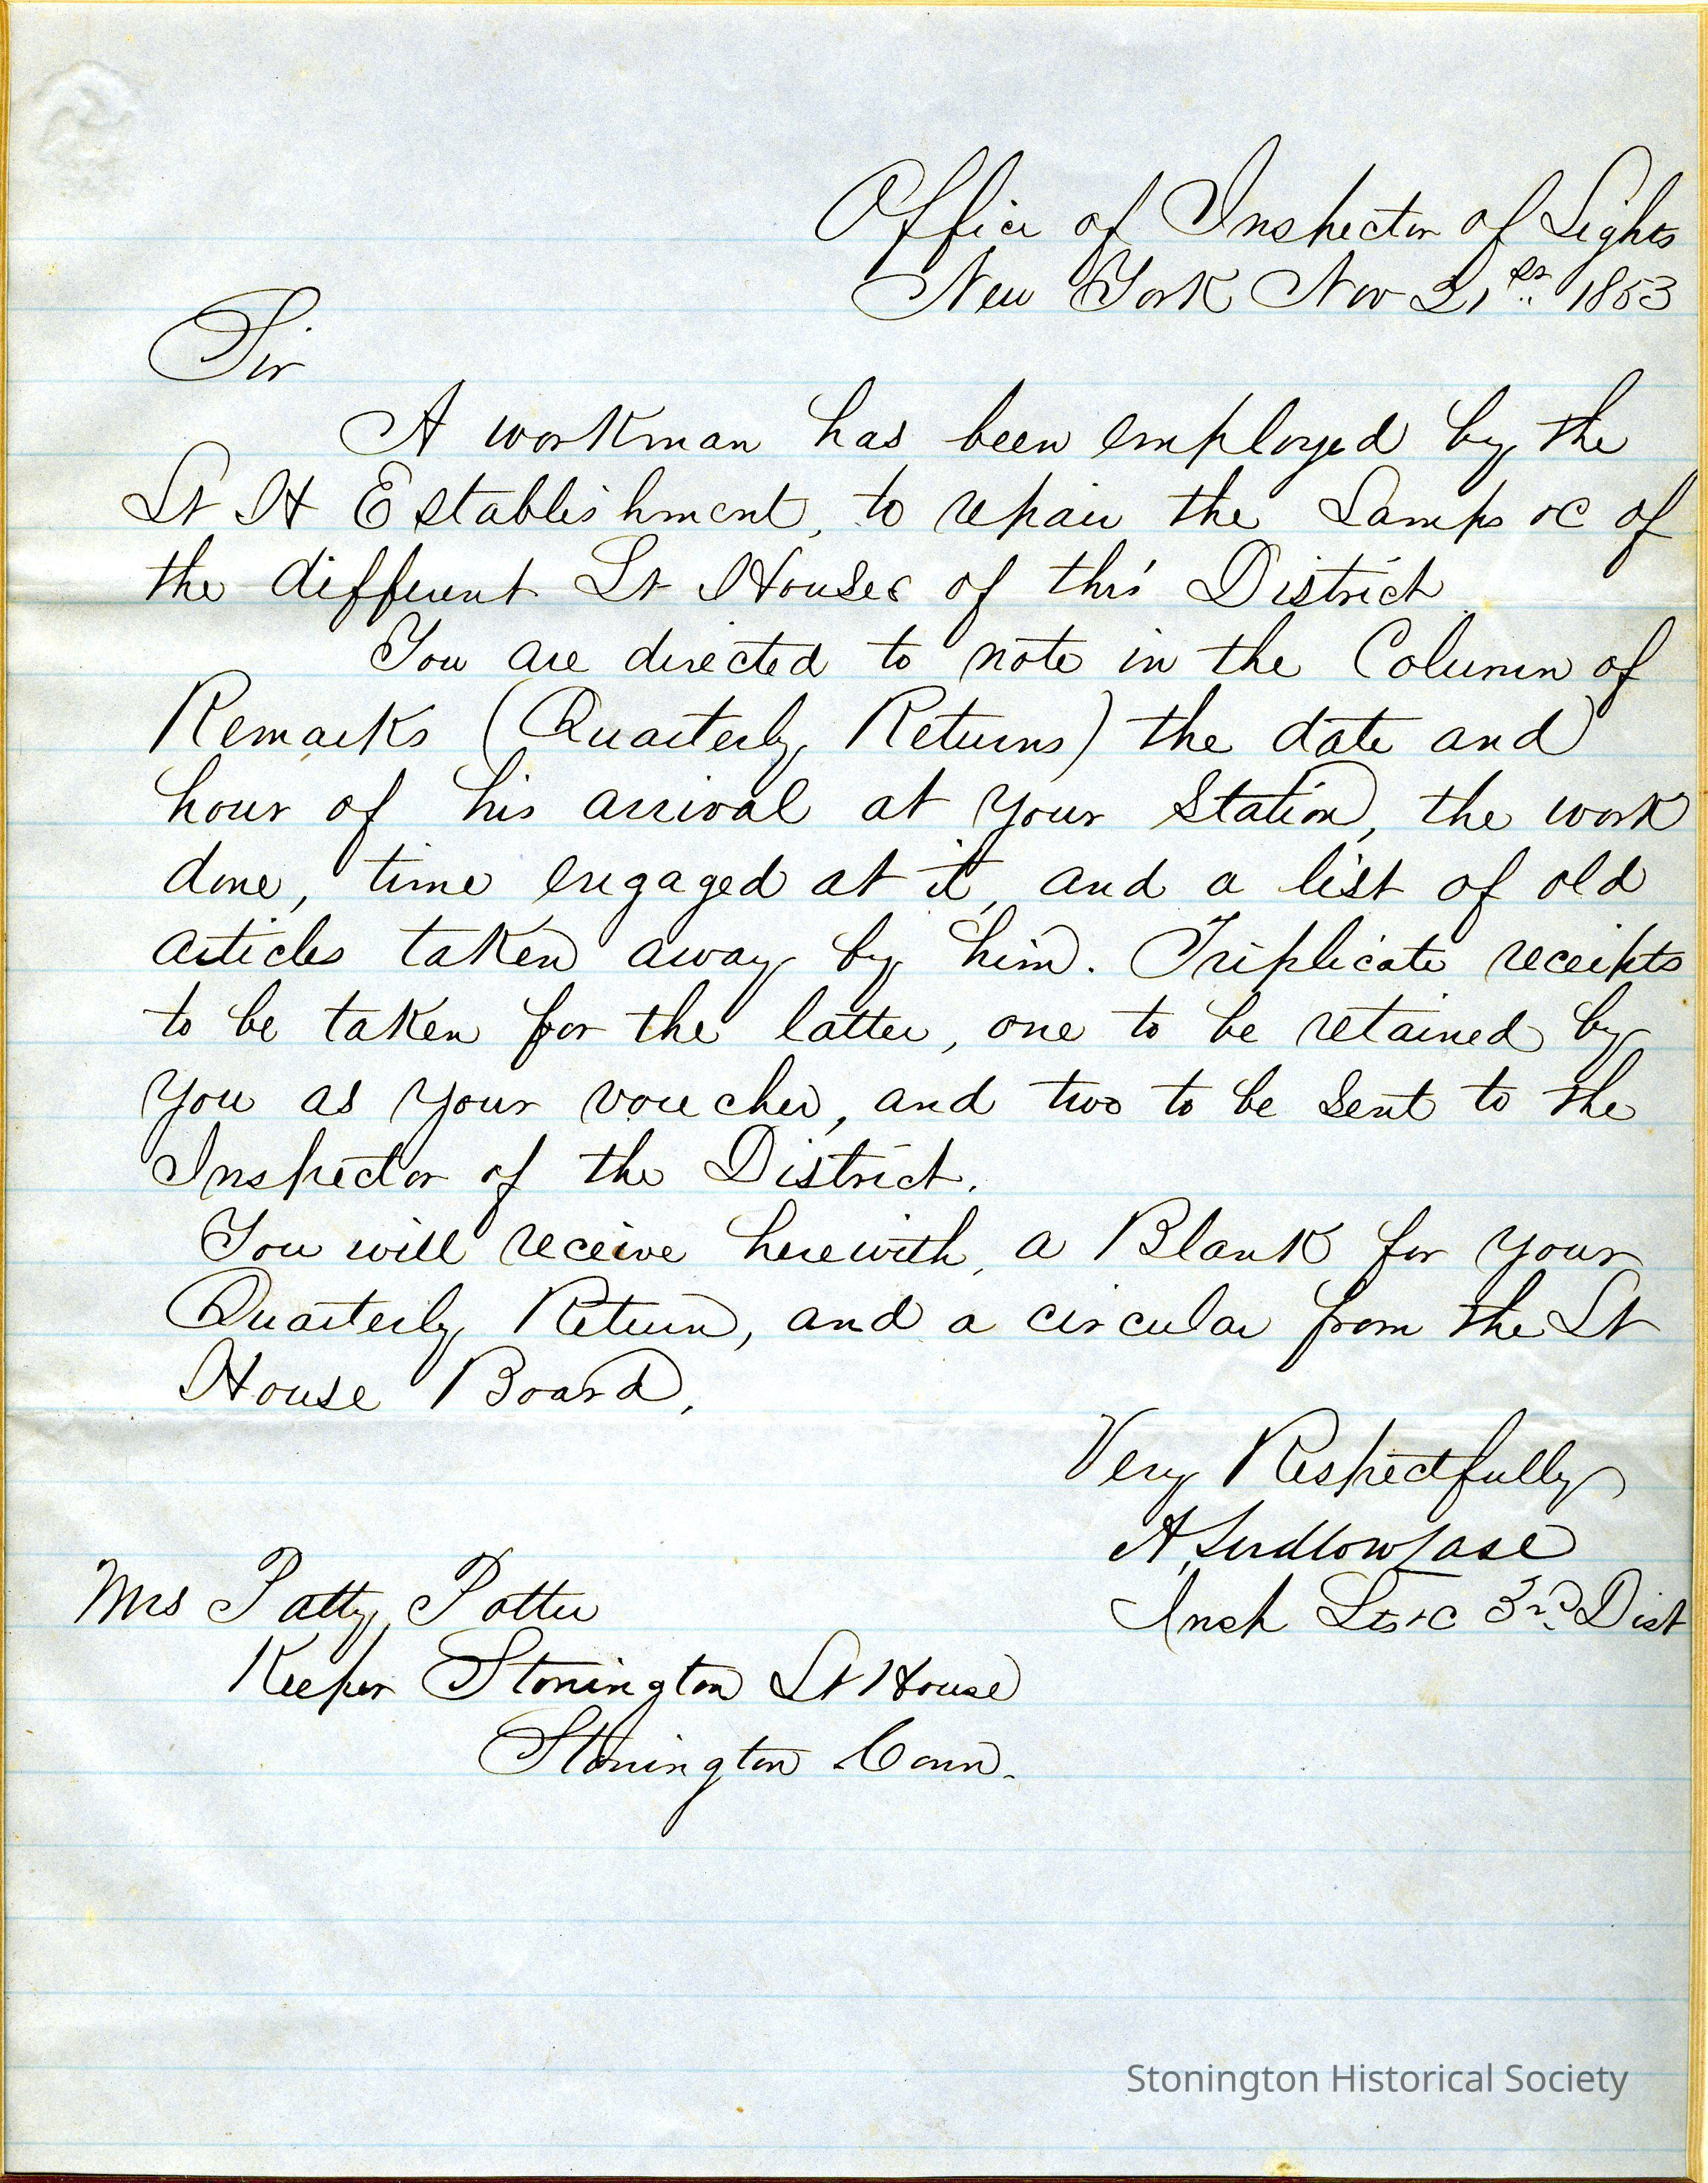 Office of Inspector of Lights
New York Nov 21st 1853
Sir
A workman has been employed by the
Lt H Establishment, to repair the Lamps &c of
the different Lt Houses of this District
You are directed to note in the Column of
Remarks (Quarterly Returns) the date and
hour of his arrival at your Station, the work
done, time engaged at it, and a list of old
articles taken away by him. Triplicate receipts
to be taken for the latter, one to be retained by
you as your voucher, and two to be sent to the
Inspector of the District.
You will receive herewith, a Blank for your
Quarterly Return, and a circular from the Lt
House Board,
Very Respectfully
A. Ludlow Case
Insp Lts &c 3rd. Dist
Mrs Patty Potter
Keeper Stonington Lt House
Stonington Conn.
Stonington Historical Society